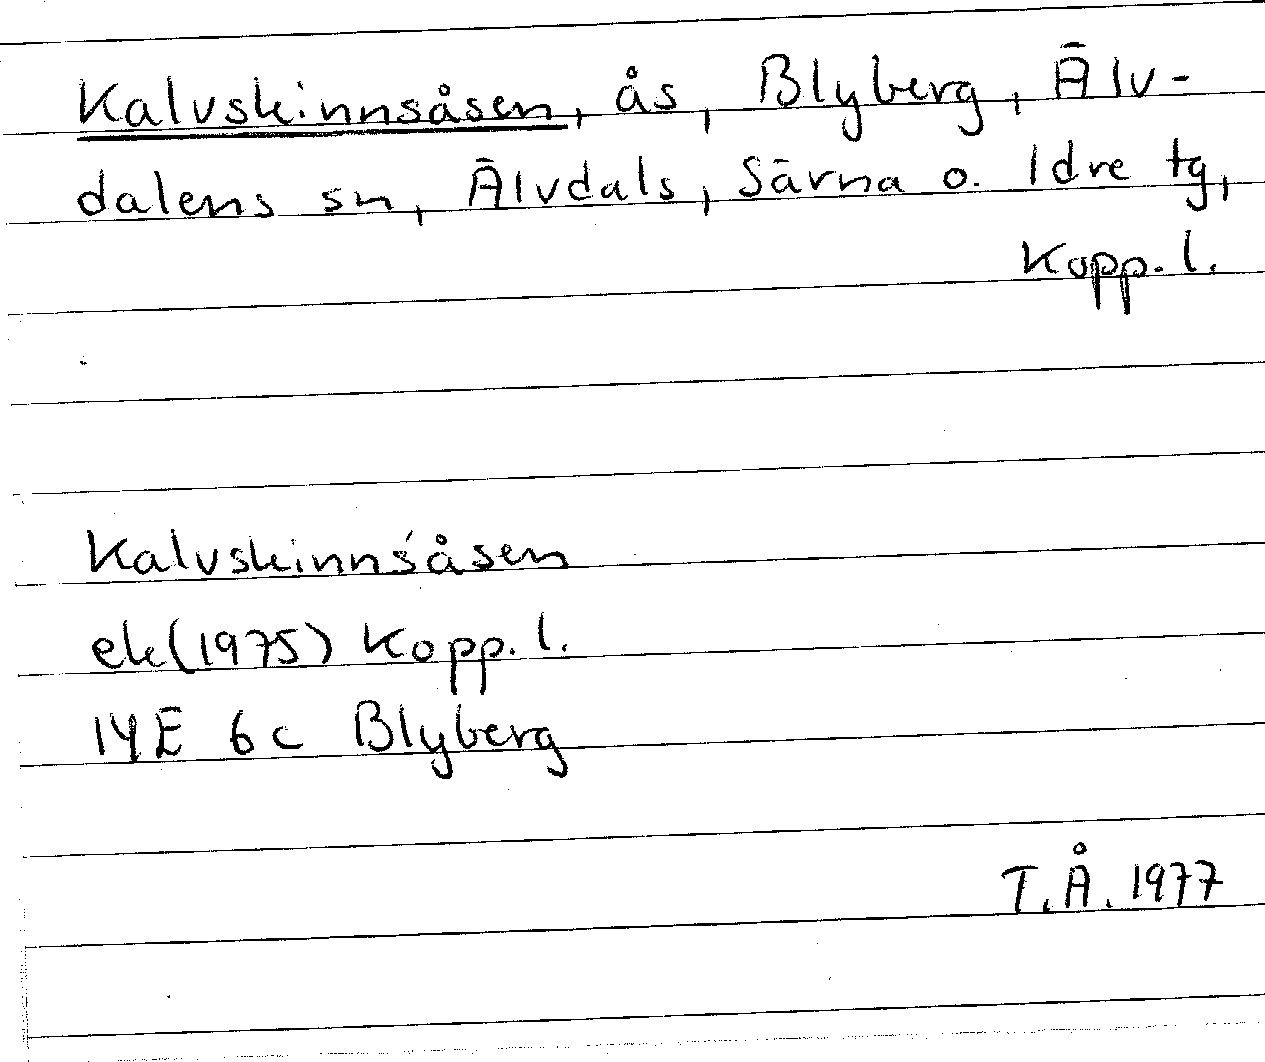 Kalvskinnsåsen, ås, Blyberg, Älv-
dalens sn, Älvdals, Särna o. Idre tg,
Kopp. l.
Kalvskinnsåsen
ek(1975) Kopp. l.
14E 6c Blyberg
T.Å. 1977